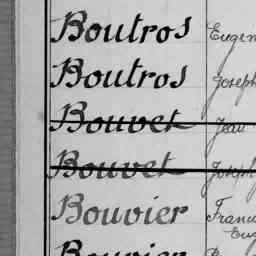 Boutros Eugèn
Boutros Joseph
Bouvet Jean
Bouvet Joseph
Bouvier Franc
Eug
Bouvier